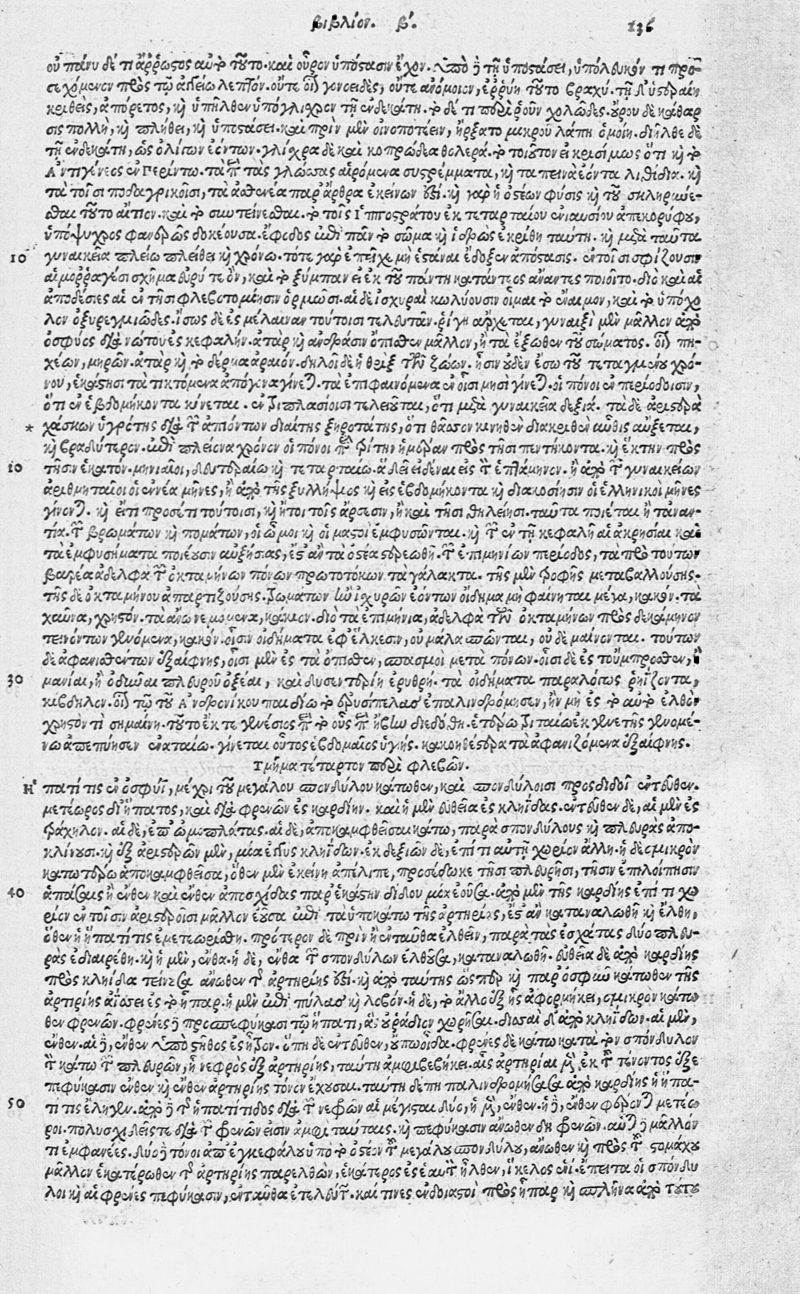 βιβλίον. β΄. 136
οὐ πάνυ δέ τι ἄῤῥωστος αὐτὸ τοῦτο. καὶ οὖρον ὑπόστασιν ἔχον. τῇ ὑποστάσει, ὑπόλευκόν τι προσ-
εχόμενον πρὸς τῷ ἀγγείῳ λεπτόν. οὔτε οἷον γονοειδὲς, οὔτε ἀνόμοιον, ἐῤῥύη τοῦτο βραχύ. τῇ δ' ὑστεραίῃ
κριθεὶς, ἀπύρετος, καὶ ὑπῆλθεν ὑπόγλισχρον τῇ ἑνδεκάτῃ. τὸ δέ τι περίῤῥουν χολῶδες. οὔρου δὲ κάθαρ-
σις πολλὴ, καὶ πλήθει, καὶ ὑποστάσει. καὶ πρὶν μὲν οἰνοποτέειν, ἤρξατο μικροῦ λάπῃ ὁμοίη. διῆλθε δὲ
τῇ ἑνδεκάτῃ, ὡς ὀλίγων ἐόντων. γλίχρα δὲ καὶ κοπρώδεα θολερά. τὸ τοιοῦτον εἰ κρισίμως ὅτι καὶ τὸ
Ἀντιγένεος ἐν Περίντῳ. τὰ παρὰ τὰς γλώσσας αἰρόμενα συστρέμματα, καὶ τὰ ταπεινὰ ἐόντα λιθίδια. καὶ
τὰ τοῖσι ποδαγρικοῖσι, τὰ ἀσθενέα παρ' ἄρθρα ἐκείνων ἐστί. καὶ γὰρ ἡ ὀστέων φύσις καὶ τοῦ σκληρύνε-
σθαι τοῦτο αἴτιον. καὶ τὸ συντείνεσθαι. τὸ τοῖς Ἱπποστράτου ἐκ τεταρταίου ἐνιαυσίου ἀπεκορυφου,
ὑπόψυχρος φανερῶς δοκέουσα. ἔφοδος ἐπὶ πᾶν τὸ σῶμα καὶ ἱδρὼς ἐκρίθη ταύτῃ. καὶ μετὰ ταῦτα
10 γυναικεῖα πλείω πλείθει καὶ χρόνῳ. τότε γὰρ ἐπεῖχε μὴ ἱστάναι ἐδόξεν ἀπόστασις. ἐν τοῖσι στηρίζουσιν
αἱμοῤῥαγέσι σχῆμα εὑρετέον, καὶ τὸ ξύμπαν εἰ ἐκ τοῦ πάντη κατάντεος ἄναντες ποιοῖτο. διὸ καὶ αἱ
ἀποδέσιες αἱ ἐν τῇσι φλεβοτομίῃσιν ὁρμῶσι. αἱ δὲ ἰσχυραὶ κωλύουσιν οἶμαι τὸ ἔναιμον, καὶ τὸ ὑπόχο-
λον ὀξυρεγμιῶδες. ἴσως δὲ ἐς μέλαιναν τούτοισι τελευτᾶν. ῥίγη ἄρχεται, γυναιξὶ μὲν μᾶλλον ἀπὸ
ὀσφύος διὰ νώτου ἐς κεφαλήν. ἀτὰρ καὶ ἀνδράσιν ὄπισθεν μᾶλλον, ἢ τὰ ἔξωθεν τοῦ σώματος. οἷον πη-
χέων, μηρῶν. ἀτὰρ καὶ τὸ δέρμα ἀραιόν. δηλοῖ δὲ ἡ θρὶξ τῶν ζώων. ᾗσιν οὐδὲν ἔσω τοῦ τεταγμένου χρό-
νου, ἑκάστῃσι τὰ τικτόμενα ἀπόγονα γίνεται. τὰ ἐπιφαινόμενα ἐν οἷσι μησὶ γίνεται. οἱ πόνοι ἐν περιόδοισιν,
ὅτι ἐν ἑβδομήκοντα κινεῖται. ἐν τριπλασίοισι τελειοῦται, ὅτι μετὰ γυναικεῖα δεξιά. τὰ δὲ ἀριστερὰ
* χάσκων ὑγρότης διὰ τῶν ἀπιόντων διαίτης ξηροτάτης, ὅτι θᾶσσον κινηθὲν διακριθὲν αὖθις αὔξεται,
καὶ βραδύτερον. ἐπὶ πλείονα χρόνον οἱ πόνοι περὶ τρίτην ἡμέραν πρὸς τῇσι πεντήκοντα. καὶ ἕκτην πρὸς
10 τῇσιν ἑκατόν. μηνιαῖοι, δευτεραίῳ καὶ τεταρταίῳ. ἃ δεῖ εἰδέναι εἰς τὸν ἑπτάμηνον. ἢ ἀπὸ τῶν γυναικείων
ἀριθμητέοι οἱ ἐννέα μῆνες, ἢ ἀπὸ τῆς ξυλλήψιος καὶ εἰς ἑβδομήκοντα καὶ διακοσίῃσιν οἱ ἑλληνικοὶ μῆνες
γίνονται. καὶ εἴ τι προσέτι τούτοισι, καὶ ἤτοι τοῖς ἄρσεσιν, ἢ καὶ τῇσι θηλείῃσι. ταῦτα ποιεῖται ἢ τἀναν-
τία. τῶν βρωμάτων καὶ πομάτων, οἱ ὦμοι καὶ οἱ μαστοὶ ἐμφυσῶνται. καὶ τῶν ἐν τῇ κεφαλῇ αἱ ἀκρησίαι καὶ
τὰ ἐμφυσήματα ποιέουσιν αὐξήσιας, ἐς ἂν τὰ ὀστέα στερεωθῇ. τῶν ἐπιμηνίων περίοδος, τὰ πρὸ τουτων
βαρέα ἀδελφὰ τῶν ὀκταμήνων πόνων πρωτοτόκων τὰ γάλακτα. τῆς μὲν τροφῆς μεταβαλλούσης.
τῆς δὲ ὀκταμήνου ἀπαρτιζούσης. τρωμάτων ἢν ἰσχυρῶν ἐόντων οἴδημα μὴ φαίνηται μέγα, κακόν. τὰ
χαῦνα, χρηστόν. τὰ ἄνω νεμόμενα, κάκιον. διὸ τὰ ἐπιμήνια, ἀδελφὰ τῶν ὀκταμήνων πρὸς δεκάμηνον
τεινόντων γενόμενα, κακόν. οἷσιν οἰδήματα ἐφ' ἕλκεσιν, οὐ μάλα σπῶνται, οὐδὲ μαίνονται. τουτων
δὲ ἀφανισθέντων ἐξαίφνης, οἷσι μὲν ἐς τὰ ὄπισθεν, σπασμοὶ μετὰ πόνων. οἷσι δὲ ἐς τοὔμπροσθεν, ἢ
30 μανίαι, ἢ ὀδύναι πλευροῦ ὀξέαι, καὶ δυσεντερίη ἐρυθρή. τὰ οἰδήματα παραλόγως ῥηΐζοντα,
κίβδηλον. οἷον τῷ τοῦ Ἀνδρονίκου παιδίῳ τὸ ἐρυσίπελας ἐπαλινδρόμησεν, ἢν μὴ ἐς τὸ αὐτὸ ἐλθὸν
χρηστόν τι σημαίνῃ. τοῦτο ἐκ τε γνέσιος περὶ τὸ οὖς περὶ ἥβην διεδόθη. ἑτέρῳ τριταίῳ ἐκ γενετῆς γενομέ-
νῳ ἀπεπύησεν ἐναταίῳ. γίνεται οὗτος ἑβδομαῖος ὑγιής. κακοηθέστερα τὰ ἀφανιζόμενα ἐξαίφνης.
Τμῆμα τέταρτον περὶ φλεβῶν.
Ἡπατῖτις ἐν ὀσφύϊ, μέχρι τοῦ μεγάλου σπονδύλου κάτωθεν, καὶ σπονδύλοισι προσδιδοῖ ἐντεῦθεν.
μετέωρος δι' ἥπατος, καὶ διὰ φρενῶν ἐς καρδίην. καὶ ἡ μὲν εὐθεῖα ἐς κληῖδας. ἐντεῦθεν δὲ, αἱ μὲν ἐς
τράχηλον. αἱ δὲ, ἐπ' ὠμοπλάτας. αἱ δὲ, ἀποκαμφθεῖσαι κάτω, παρὰ σπονδύλους καὶ πλευρὰς ἀπο-
κλίνουσι. καὶ ἐξ ἀριστερῶν μὲν, μία ἐγγὺς κληΐδων. ἐκ δεξιῶν δὲ, ἐπί τι αὐτὴ χωρίον ἄλλη. ἡ δὲ σμικρὸν
κατωτέρω ἀποκαμφθεῖσα, ὅθεν μὲν ἐκείνη ἀπέλιπε, προσέδωκε τῇσι πλευρῇσι, τῇσιν ἐπιλοίπῃσιν
40 ἁπάσας ἢ ἔνθεν καὶ ἔνθεν ἀποσχίδας παρ' ἑκάστην διδοῦ μέχ ἐοῦσα. ἀπὸ μὲν τῆς καρδίης ἐπί τι χω-
ρίον ἐν τοῖσιν ἀριστεροῖσι μᾶλλον ἐοῦσα ἐπὶ τὰ ὑποκάτω τῆς ἀρτηρίης, ἐς ἂν καταναλωθῇ καὶ ἔλθῃ,
ὅθεν ἡ ἡπατῖτις ἐμετεωρίσθη. πρότερον δὲ πρὶν ἢ ἐνταῦθα ἐλθεῖν, παρὰ τὰς ἐσχάτας δύο πλευ-
ρὰς ἐδιαιρέθη. καὶ ἡ μὲν, ἔνθα. ἡ δὲ, ἔνθα τῶν σπονδύλων ἐλθοῦσα, καταναλώθη. εὐθεῖα δὲ ἀπὸ καρδίης
πρὸς κληῖδα τείνουσα ἄνωθεν τῆς ἀρτηρίης ἐστί. καὶ ἀπὸ ταύτης ὥσπερ καὶ παρ' ὀσφὺν κάτωθεν τῆς
ἀρτηρίης ἀΐσσει ἐς τὸ ἧπαρ. ἡ μὲν ἐπὶ πύλας καὶ λοβόν. ἡ δὲ, τὸ ἄλλο ἑξῆς ἀφορμήκει, σμικρὸν κάτω-
θεν φρενῶν. φρένες δὲ προσπεφύκασι τῷ ἥπατι, ἃς οὐ ῥάδιον χωρίσαι. δισσαὶ δ' ἀπὸ κληΐδων. αἱ μὲν,
ἔνθεν. αἱ δὲ, ἔνθεν ὑπὸ στῆθος ἐς ἦτρον. ὅπη δὲ ἐντεῦθεν, ὔπω οἶδα. φρένες δὲ κάτω κατὰ τὸν σπόνδυλον
τὸν κάτω τῶν πλευρῶν, ᾗ νεφρὸς ἐξ ἀρτηρίης, ταύτῃ ἀμφιβεβήκει. ἀρτηρίαι δὲ ἐκ τοῦ τένοντος ἐξε-
πεφύκασιν ἔνθεν καὶ ἔνθεν ἀρτηρίης τόνον ἔχουσαι. ταύτῃ δέ πη παλινδρομήσασα ἀπὸ καρδίης ἡ ἡπα-
50 τῖτις ἔληγεν. ἀπὸ δὲ τῆς ἡπατίτιδος διὰ τῶν φρενῶν αἱ μέγισται δύο, ἡ μὲν, ἔνθεν. ἡ δὲ, ἔνθεν φέρονται μετέω-
ροι. πολυσχιδεῖς τε διὰ τῶν φρενῶν εἰσιν ἀμφὶ ταύτας. καὶ πεφύκασιν ἄνωθεν δὲ φρενῶν. αὗται δὲ μᾶλλον
τι ἐμφανέες. δύο δὲ τόνοι ἀπ' ἐγκεφάλου ὑπὸ τὸ ὀστέον τοῦ μεγάλου σπονδύλου, ἄνωθεν καὶ πρὸς τοῦ στομάχου
μᾶλλον ἑκατέρωθεν τῆς ἀρτηρίης παρελθὼν, ἑκάτερος ἐς ἑαυτὸν ἦλθεν, ἴκελος ἑνί. ἔπειτα οἱ σπόνδυ-
λοι καὶ αἱ φρένες πεφύκασιν, ἐνταῦθα ἐτελεύτων. καί τινες ἐνδοιαστοὶ πρὸς ἧπαρ καὶ σπλῆνα ἀπὸ τούτου